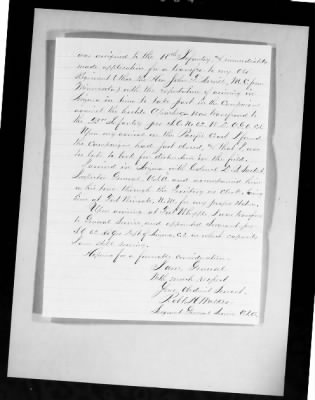 was assigned to the 10th Infantry, & immediately
made application for a transfer to my old
Regiment (thro. the Hon. John M.C. from
Minnesota) with the expectation of arriving in
Arizona in time to take part in the Campaign
against the hostile was transferred to
the Infantry per S.O. No. 62. A.G.O. C.S.
Upon my arrival on the Pacific Coast I found
the Campaign had just closed, & that I was
too late to look for distinction in the field.
I arrived in Arizona with Colonel
Inspector General U.S.A. and accompanied him
in his tour through the Territory as Clerk,
him at Fort N.M. for my proper station.
Upon arriving at Fort Whipple I was transferred
to General Service and appointed Sergeant per
of Arizona, C.S. in which capacity
I am still serving.
Hoping for a favorable consideration.
I am General
With much respect
Your Obedient Servant
Robt. H.
Sergeant General Service U.S.A.